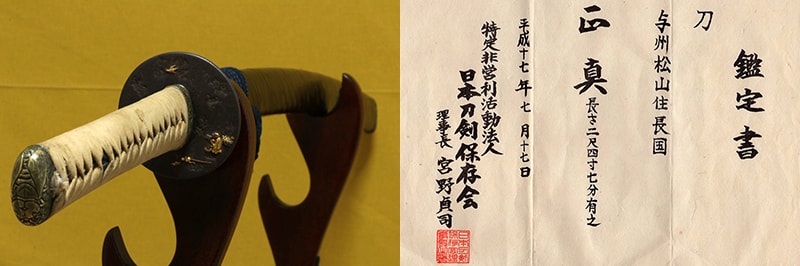 鑑定書
刀
与州松山住長国
正真
長さ二尺四寸七分有之
平成十七年七月十七日
特定非営利活動法人
日本刀剣保存会
理事長 宮野貞司